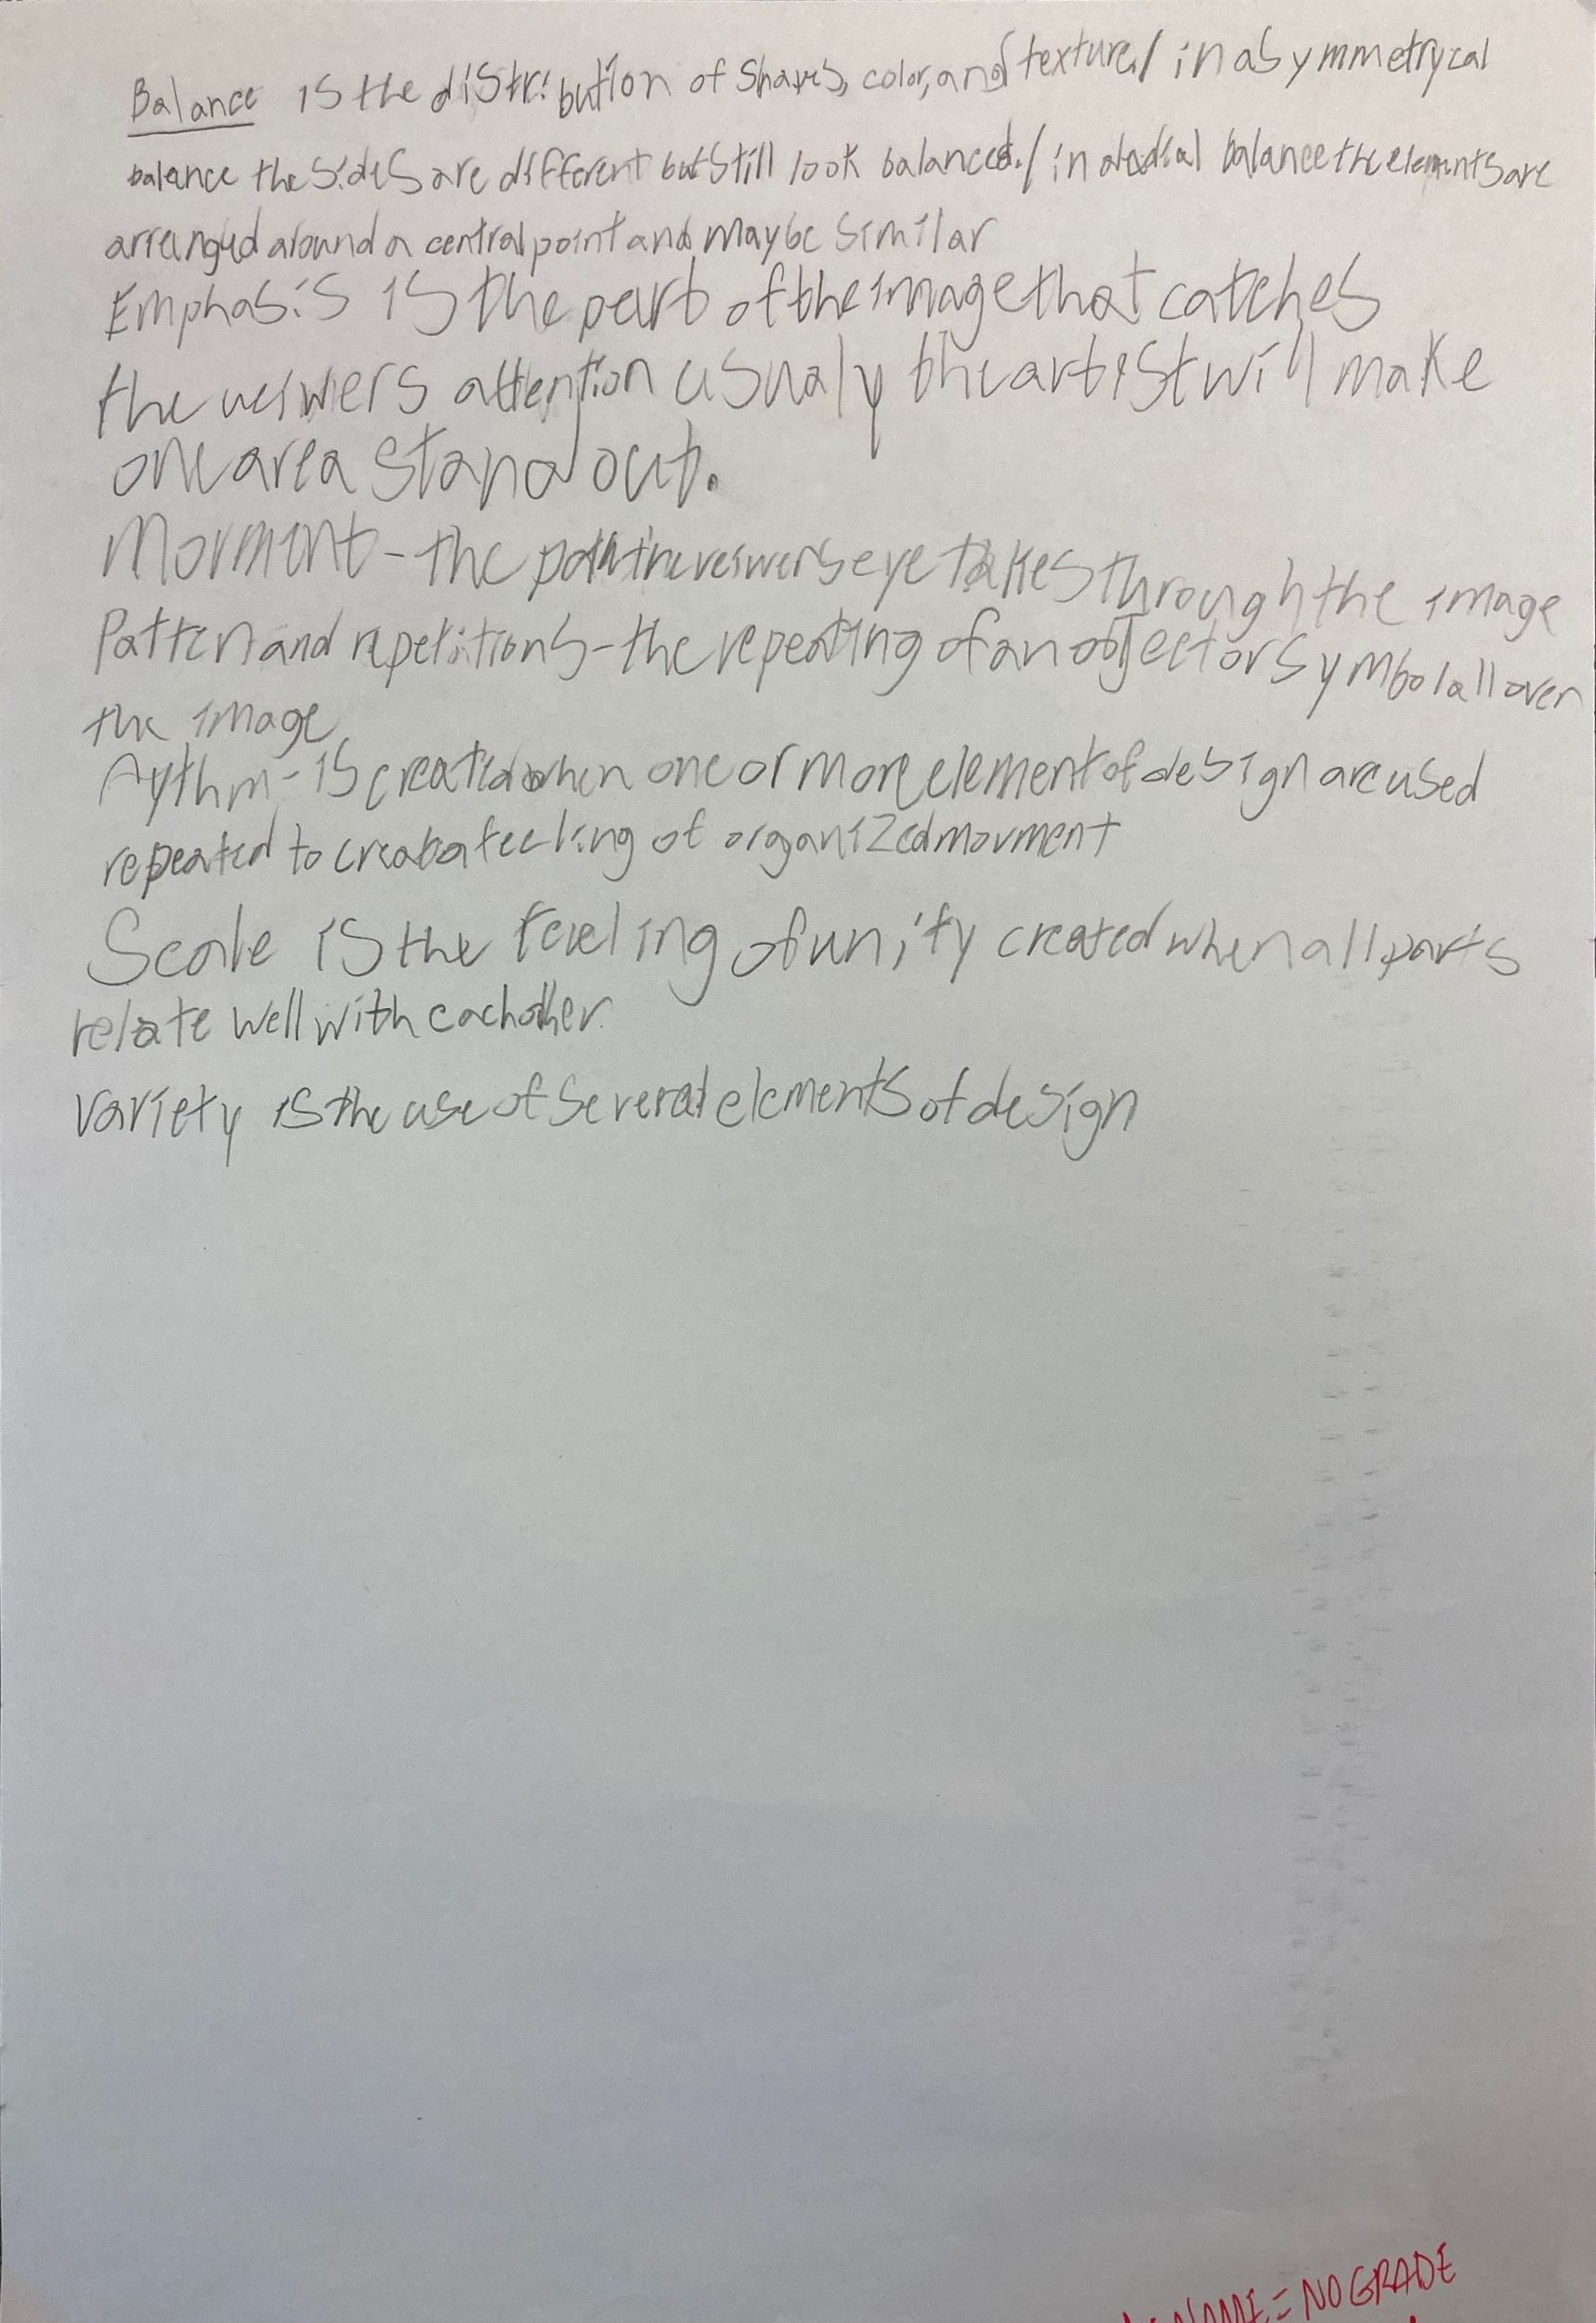 Balance is the distribution of Shapes, color, and texture./ in asymmetrycal
balance the sides are different but still look balanced./ in a radial balance the elements are
arranged around a central point and maybe similar
Emphasis is the part of the image that catches
the veiwers attention usualy the artist will make
one area stand out.
Movment - the path the veiwers eye takes through the image
Patten and repetitions - the repeating of an object or symbol all over
the image
Rythm - is created when one or more element of design are used
repeated to creat a feeling of organized movment
Scale is the feeling of unity created when all parts
relate well with each other.
Variety is the use of several elements of design
NAME = NO GRADE